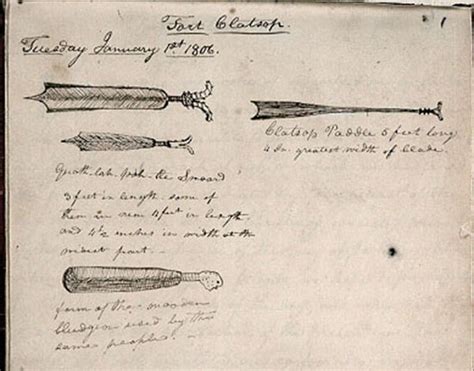 Fort Clatsop.
1
Tuesday January 1st. 1806.
Clatsop Paddle 5 feet long
4 In. greatest width of blade.
the Sword
3 feet in length some of
them 4 feet in length
and 4 1/2 inches in width at the
widest part.
form of the wooden
bludgeon used by these
same people. -